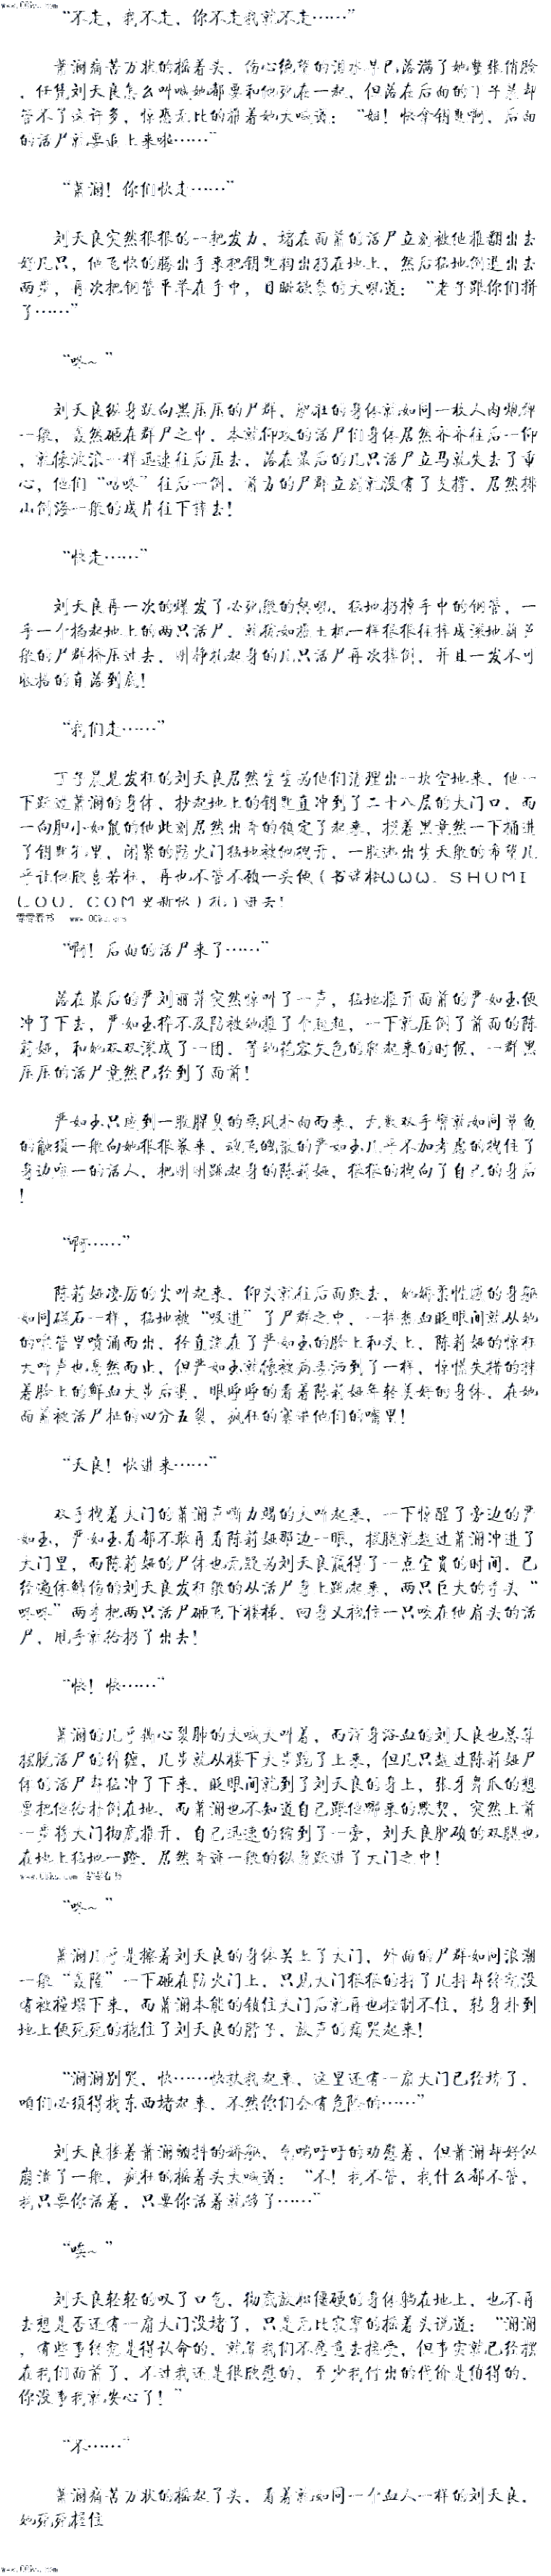 “不走，我不走，你不走我就不走……”
萧澜痛苦万状的摇着头，伤心绝望的泪水早已落满了她整张俏脸
，任凭刘天良怎么叫喊她都要和他死在一起，但落在后面的丁子晨却
管不了这许多，惊恐无比的推着她大喊道：“姐！快拿钥匙啊，后面
的活尸就要追上来啦……”
“萧澜！你们快走……”
刘天良突然狠狠的一把发力，堵在面前的活尸立刻被他推翻出去
好几只，他飞快的腾出手来把钥匙掏出扔在地上，然后猛地倒退出去
两步，再次把钢管平举在手中，目眦欲裂的大吼道：“老子跟你们拼
了……”
“咚~”
刘天良纵身跃向黑压压的尸群，肥壮的身体就如同一枚人肉炮弹
一般，轰然砸在群尸之中，本就仰攻的活尸们身体居然齐齐往后一仰
，就像波浪一样迅速往后压去，落在最后的几只活尸立马就失去了重
心，他们“咕咚”往后一倒，前方的尸群立刻就没有了支撑，居然排
山倒海一般的成片往下摔去！
“快走……”
刘天良再一次的爆发了必死般的怒吼，猛地扔掉手中的钢管，一
手一个掐起地上的两只活尸，就犹如推土机一样狠狠往摔成滚地葫芦
般的尸群挤压过去，刚挣扎起身的几只活尸再次摔倒，并且一发不可
收拾的直落到底！
“我们走……”
丁子晨见发狂的刘天良居然生生为他们清理出一块空地来，他一
下跃过萧澜的身体，抄起地上的钥匙直冲到了二十八层的大门口，而
一向胆小如鼠的他此刻居然出奇的镇定了起来，摸着黑竟然一下捅进
了钥匙孔里，闭紧的防火门猛地被他拽开，一股逃出生天般的希望几
乎让他欣喜若狂，再也不管不顾一头他（书迷楼WWW．SHUMI
LOU．COM更新快）扎了进去！
零零看书 www.00ks.com
“啊！后面的活尸来了……”
落在最后的严刘丽萍突然惊叫了一声，猛地推开面前的严如玉便
冲了下去，严如玉猝不及防被她推了个趔趄，一下就压倒了前面的陈
莉娅，和她双双滚成了一团，等她花容失色的爬起来的时候，一群黑
压压的活尸竟然已经到了面前！
严如玉只感到一股腥臭的恶风扑面而来，无数双手臂就如同章鱼
的触须一般向她狠狠卷来，魂飞魄散的严如玉几乎不加考虑的拽住了
身边唯一的活人，把刚刚跳起身的陈莉娅，狠狠的拽向了自己的身后
！
“啊……”
陈莉娅凄厉的尖叫起来，仰头就往后面跌去，她娇柔性感的身躯
如同磁石一样，猛地被“吸进”了尸群之中，一捧热血眨眼间就从她
的喉管里喷涌而出，径直浇在了严如玉的脸上和头上，陈莉娅的惊狂
大叫声也戛然而止，但严如玉就像被病毒洒到了一样，惊慌失措的抹
着脸上的鲜血大步后退，眼睁睁的看着陈莉娅年轻美好的身体，在她
面前被活尸扯的四分五裂，疯狂的塞进他们的嘴里！
“天良！快进来……”
双手拽着大门的萧澜声嘶力竭的大叫起来，一下惊醒了旁边的严
如玉，严如玉看都不敢再看陈莉娅那边一眼，拔腿就越过萧澜冲进了
大门里，而陈莉娅的尸体也无疑为刘天良赢得了一点宝贵的时间，已
经遍体鳞伤的刘天良发狂般的从活尸身上跳起来，两只巨大的拳头“
咚咚”两拳把两只活尸砸飞下楼梯，回身又掐住一只咬在他肩头的活
尸，甩手就给扔了出去！
“快！快……”
萧澜的几乎撕心裂肺的大喊大叫着，而浑身浴血的刘天良也总算
摆脱活尸的纠缠，几步就从楼下大步跑了上来，但几只越过陈莉娅尸
体的活尸却猛冲了下来，眨眼间就到了刘天良的身上，张牙舞爪的想
要把他给扑倒在地，而萧澜也不知道自己跟他哪来的默契，突然上前
一步将大门彻底推开，自己迅速的缩到了一旁，刘天良肥硕的双腿也
在地上猛地一蹬，居然奇迹一般的纵身跃进了大门之中！
www.00ks.com 零零看书
“咚~”
萧澜几乎是擦着刘天良的身体关上了大门，外面的尸群如同浪潮
一般“轰隆”一下砸在防火门上，只见大门狠狠的抖了几抖却终究没
有被撞塌下来，而萧澜本能的锁住大门后就再也控制不住，转身扑到
地上便死死的抱住了刘天良的脖子，放声的痛哭起来！
“澜澜别哭，快……快扶我起来，这里还有一扇大门已经垮了，
咱们必须得找东西堵起来，不然你们会有危险的……”
刘天良搂着萧澜颤抖的娇躯，气喘吁吁的劝慰着，但萧澜却好似
崩溃了一般，疯狂的摇着头大喊道：“不！我不管，我什么都不管，
我只要你活着，只要你活着就够了……”
“唉~”
刘天良轻轻的叹了口气，彻底放松僵硬的身体躺在地上，也不再
去想是否还有一扇大门没堵了，只是无比寂寥的摇着头说道：“澜澜
，有些事终究是得认命的，就算我们不愿意去接受，但事实就已经摆
在我们面前了，不过我还是很欣慰的，至少我付出的代价是值得的，
你没事我就安心了！”
“不……”
萧澜痛苦万状的摇起了头，看着就如同一个血人一样的刘天良，
她死死握住
www.00ks.com